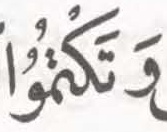 وَ تَكْتُمُوا